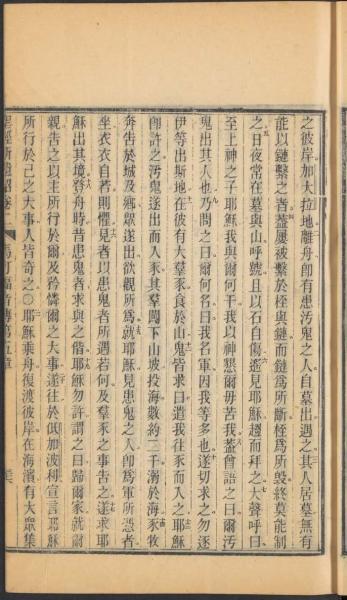 之彼岸加大拉地離舟卽有患污鬼之人自墓出遇之其人居墓無有
能以鏈繫之者蓋屢被繫於桎與鏈而鏈爲所斷桎爲所毀終莫能制
之日夜常在墓與山呼號且以石自傷遙見耶穌趨而拜之大聲呼曰
至上神之子耶穌我與爾何干我以神懇爾毋苦我蓋曾語之曰爾污
鬼出其人也乃問之曰爾何名曰我名軍因我等多也遂切求之勿逐
伊等出斯地在彼有大羣豕食於山鬼皆求曰遣我往豕而入之耶穌
卽許之污鬼遂出而入豕其羣闖下山坡投海數約二千溺於海豕牧
奔告於城及鄉衆遂出欲觀所爲就耶穌見患鬼之人卽爲軍所憑者
坐衣衣自若則懼見者以患鬼者所遇若何及羣豕之事告之遂求耶
穌出其境登舟時昔患鬼者求與之偕耶穌勿許謂之曰歸爾家就爾
親告之以主所行於爾及矜憐爾之大事遂往於低加波利宣言耶穌
所行於己之大事人皆奇之〇耶穌乘舟復渡彼岸在海濱有大衆集
馬可福音傳第五章